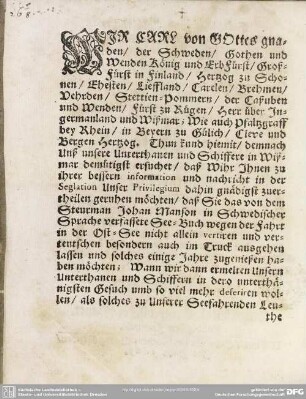 WIR CARL von GOttes gna-
den/ der Schweden/ Gothen und
Wenden König und ErbFürst/ Groß-
Fürst in Finland/ Hertzog zu Scho-
nen/ Ehesten/ Lieffland/ Carelen/ Brehmen/
Vehrden/ Stettien-Pommern/ der Caßuben
und Wenden/ Fürst zu Rügen/ Herr über In-
germanland und Wißmar; Wie auch Pfaltzgraff
bey Rhein/ in Beyern zu Gülich/ Cleve und
Bergen Hertzog. Thun kund hiemit/ demnach
Unß unsere Unterthanen und Schiffere in Wiß-
mar demütigst ersuchet/ daß Wihr Ihnen zu
ihrer bessern information und nachricht in der
Seglation Unser Privilegium dahin gnädigst zuer-
theilen geruhen möchten/ daß Sie das von dem
Steurman Johan Manson in Schwedischer
Sprache verfassete See-Buch wegen der Fahrt
in der Ost-See nicht allein vertiren und ver-
teutschen besondern auch im Truck ausgehen
lassen und solches einige Jahre zugeniessen ha-
ben möchten: Wann wir dann ermelten Unsern
Unterthanen und Schiffern in dero unterthä-
nigsten Gesuch umb so viel mehr deferiren wol-
len/ als solches zu Unserer Seefahrenden Leu-
the